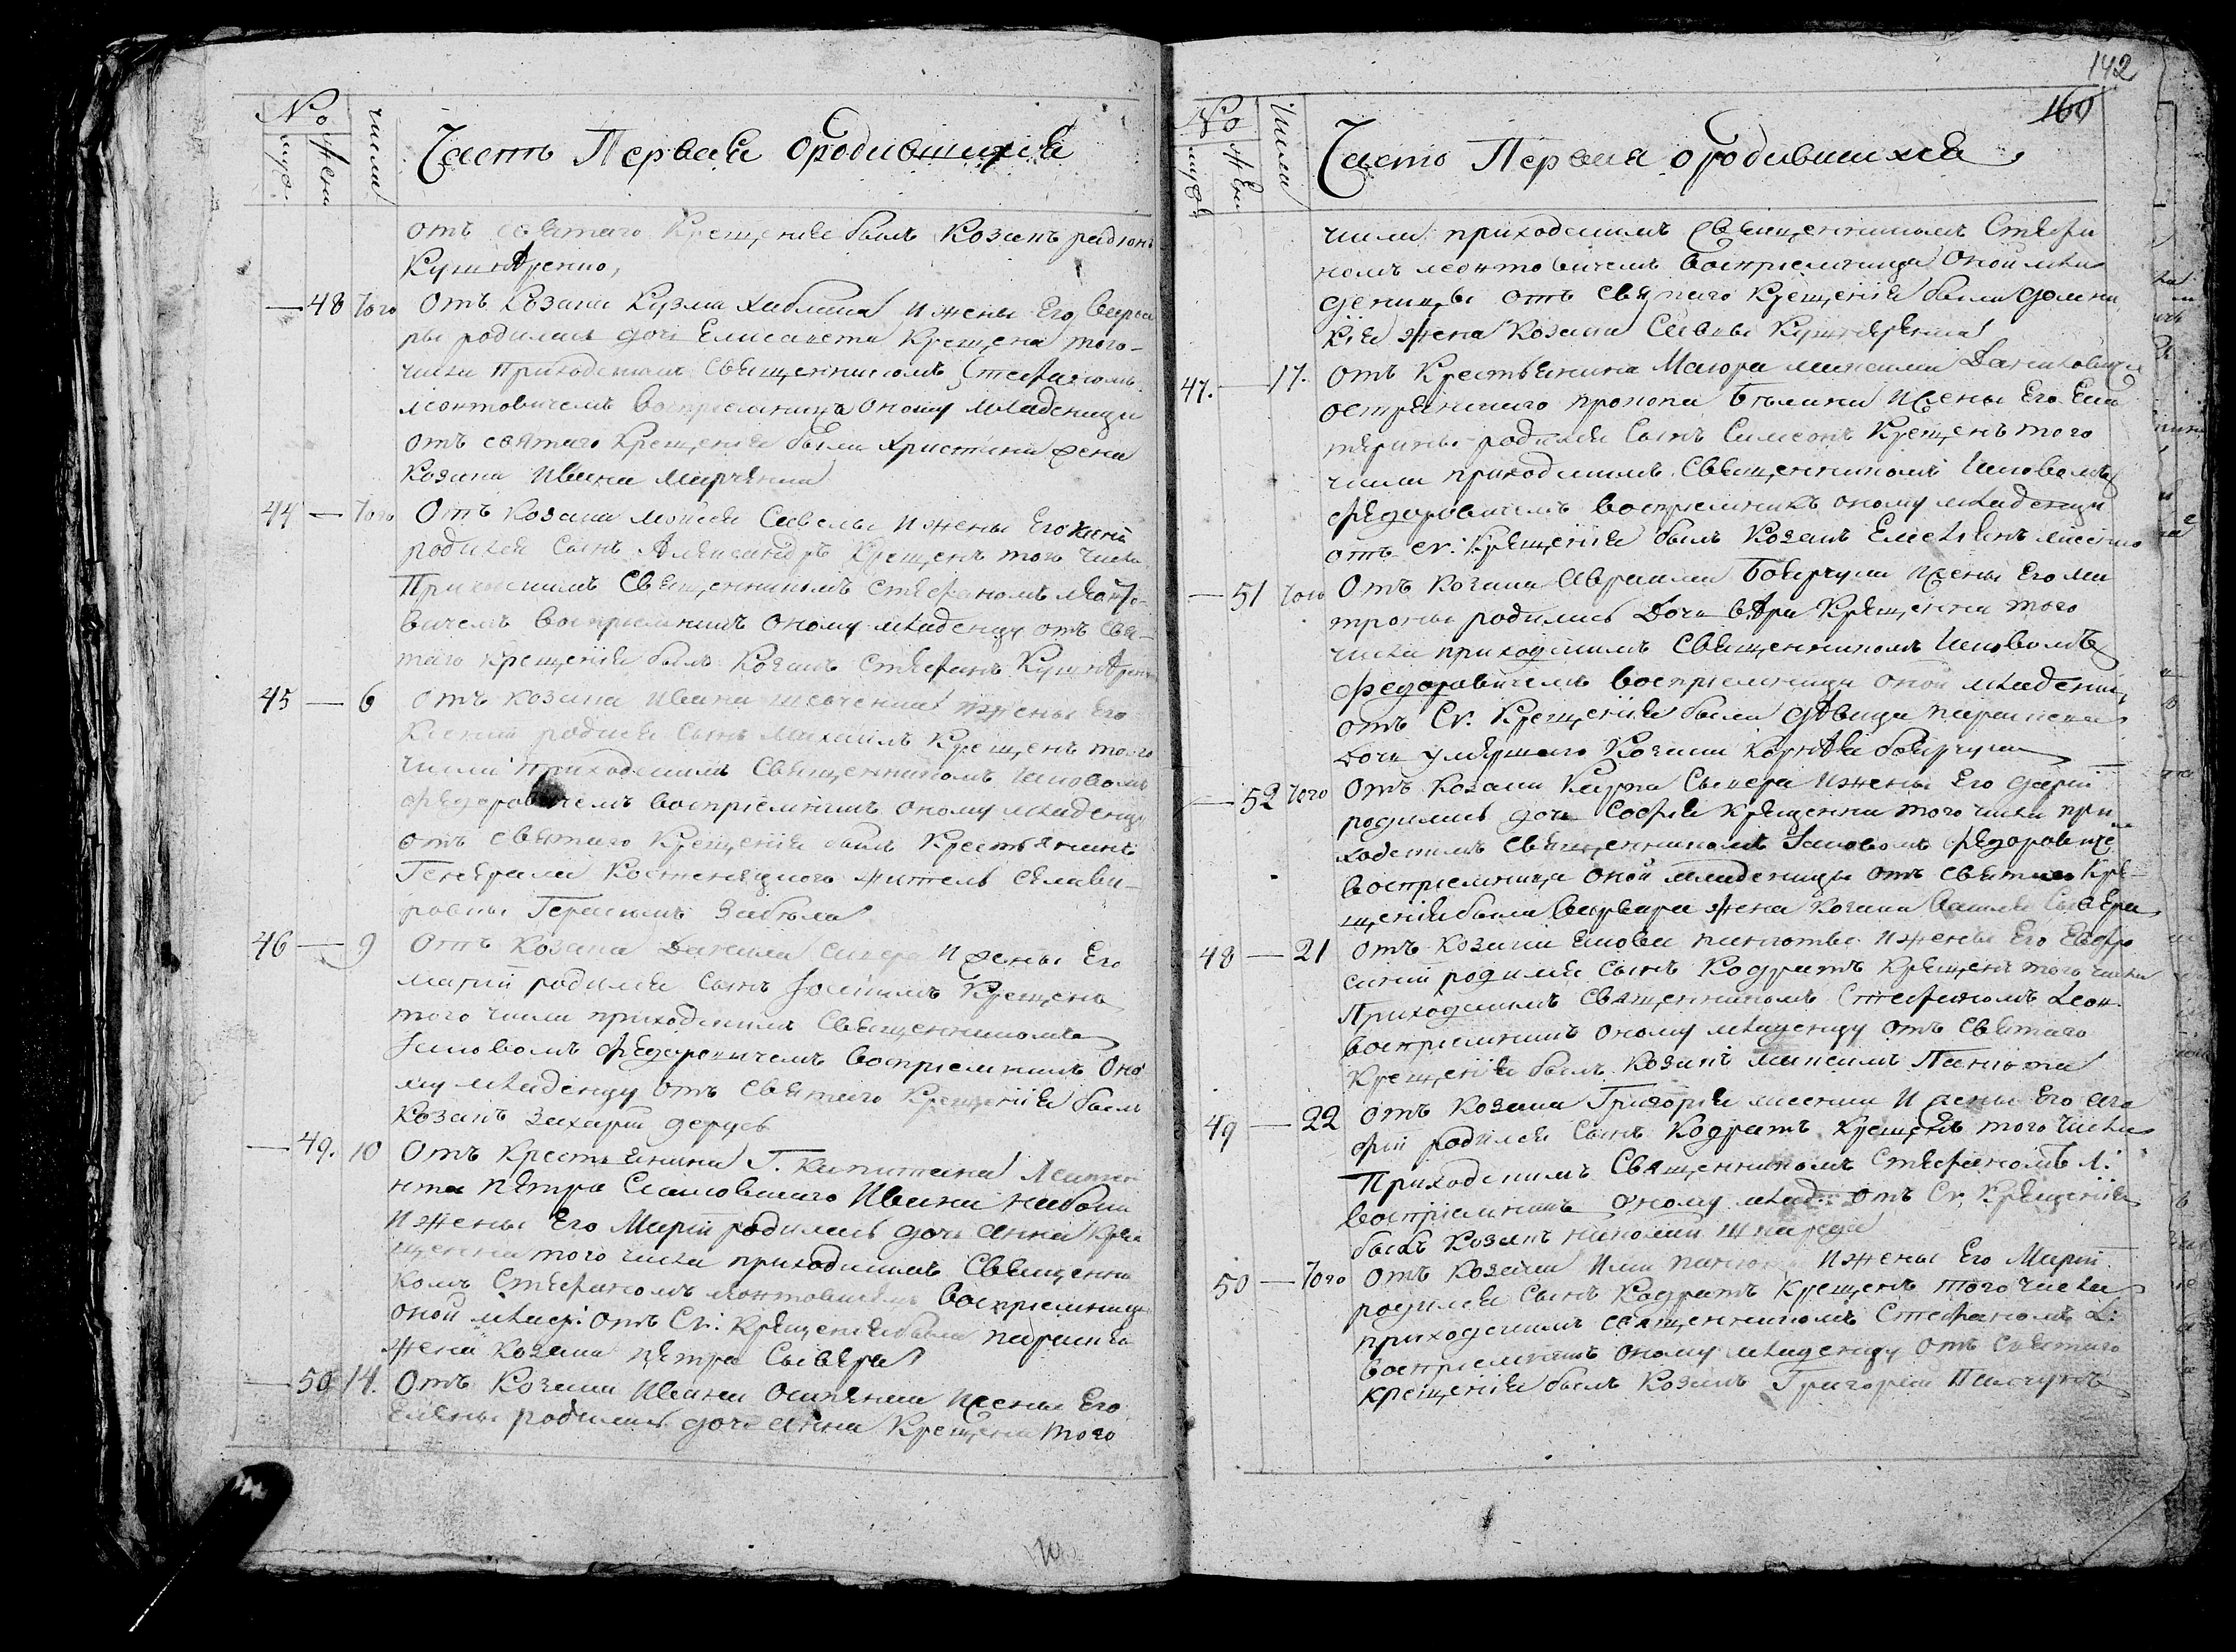 № числа
муж. жен.
Часть Первая ородившихся
отъ святаго Крещения былъ Козакъ радионъ
Кушнѣренко,
— 48 Того Отъ Козака Кузма и жены Его Варва
ры родилась дочь Елисавета Крещена того
числа Приходскимъ Священникомъ Стефаномъ
леонтовичемъ восприемница оному младенцу
отъ святаго Крещения была Христина жена
Козака Ивана Марченка
44 — Того Отъ Козака Мойсея Савелы и жены Его
родился сынъ Александръ Крещенъ того числа
Приходскимъ Священникомъ Стефаномъ леонто-
вичемъ восприемникъ оному младенцу отъ свя-
таго Крещения былъ Козакъ Стефанъ Кушнѣренко
45 — 6 Отъ Козака Ивана Шевченка и жены Его
Ксении родился сынъ Михаилъ Крещенъ того
числа Приходскимъ Священникомъ Иаковомъ
Федоровичемъ восприемникъ оному младенцу
отъ святаго Крещения былъ Крестьянинъ
Генерала житель
Герасимъ Забѣла
46 — 9 Отъ Козака Данила и жены Его
марии родился сынъ Крещенъ
того числа приходскимъ Священникомъ
Иаковомъ Федоровичемъ восприемникъ Оно
му младенцу отъ святаго Крещения былъ
Козакъ Захарий
— 49. 10 Отъ Крестьянина Г. Капитана
Петра Ивана
и жены Его Марии родилась дочь Анна Кре
щенна того числа приходскимъ Священни
комъ Стефаномъ леонтовичемъ восприемница
оной млад: отъ Св: Крещения была
жена Козака Петра Сывера
— 50 14. Отъ Козака Ивана и жены Его
Елены родилась дочь Анна Крещена того
142
160
№ Числа
муж. Жен.
Часть Первая ородившихся
числа приходскимъ Священникомъ Стефа
номъ леонтовичемъ восприемница Оной мла
деницы отъ святаго Крещения была
кия жена Козака Савы Кушнеренка
47. — 17. Отъ Крестьянина Маиора максима Данилович
острянскаго прокопа и жены Его Ека
терины родился сынъ Симеонъ Крещенъ того
числа приходскимъ Священникомъ Иаковомъ
Федоровичемъ восприемникъ оному младенцу
отъ св: Крещения былъ Козакъ Емелянъ
— 51 Того Отъ Козака Авраама и жены Его ма
троны родилась дочь вѣра Крещенна того
числа приходскимъ Священникомъ Иаковомъ
Федоровичемъ восприемница оной младениц
отъ Св. Крещения была дѣвица параскева
дочь умершаго Козака Корнѣя
— 52 Того Отъ Козака Карпа Сывера и жены Его дарии
родилась дочь София Крещенна того числа при
ходскимъ Священникомъ Иаковомъ Федорович
восприемница оной младеницы отъ святаго Кре-
щения была Варвара жена Козака Василия Сывера
48 — 21 Отъ Козака Иакова и жены Его Евфро
синии родился сынъ Кодратъ Крещенъ того числа
Приходскимъ Священникомъ Стефаномъ Леон.
восприемникъ оному младенцу отъ Святаго
Крещения былъ Козакъ Максимъ Панкота
49 — 22 Отъ Козака Григория и жены Его Ага
фии родился сынъ Кодратъ Крещенъ того числа
Приходскимъ Священникомъ Стефаномъ Л:
восприемникъ оному млад: отъ Св. Крещения
былъ Козакъ николай
50 — Того Отъ Козака Или и жены Его Марии
родился сынъ Кодратъ Крещенъ того числа
приходскимъ священникомъ Стефаномъ Л:
восприемникъ оному младенцу отъ Святаго
крещения былъ Козакъ Григорий